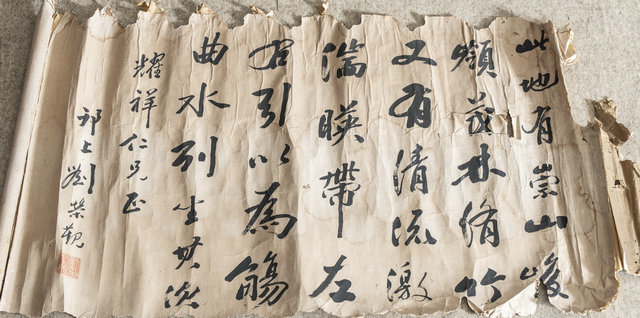 此地有崇山峻
嶺茂林脩竹
又有清流激
湍暎帶左
右引以為觴
曲水列坐其次
耀祥仁兄正
邗上劉榮觀